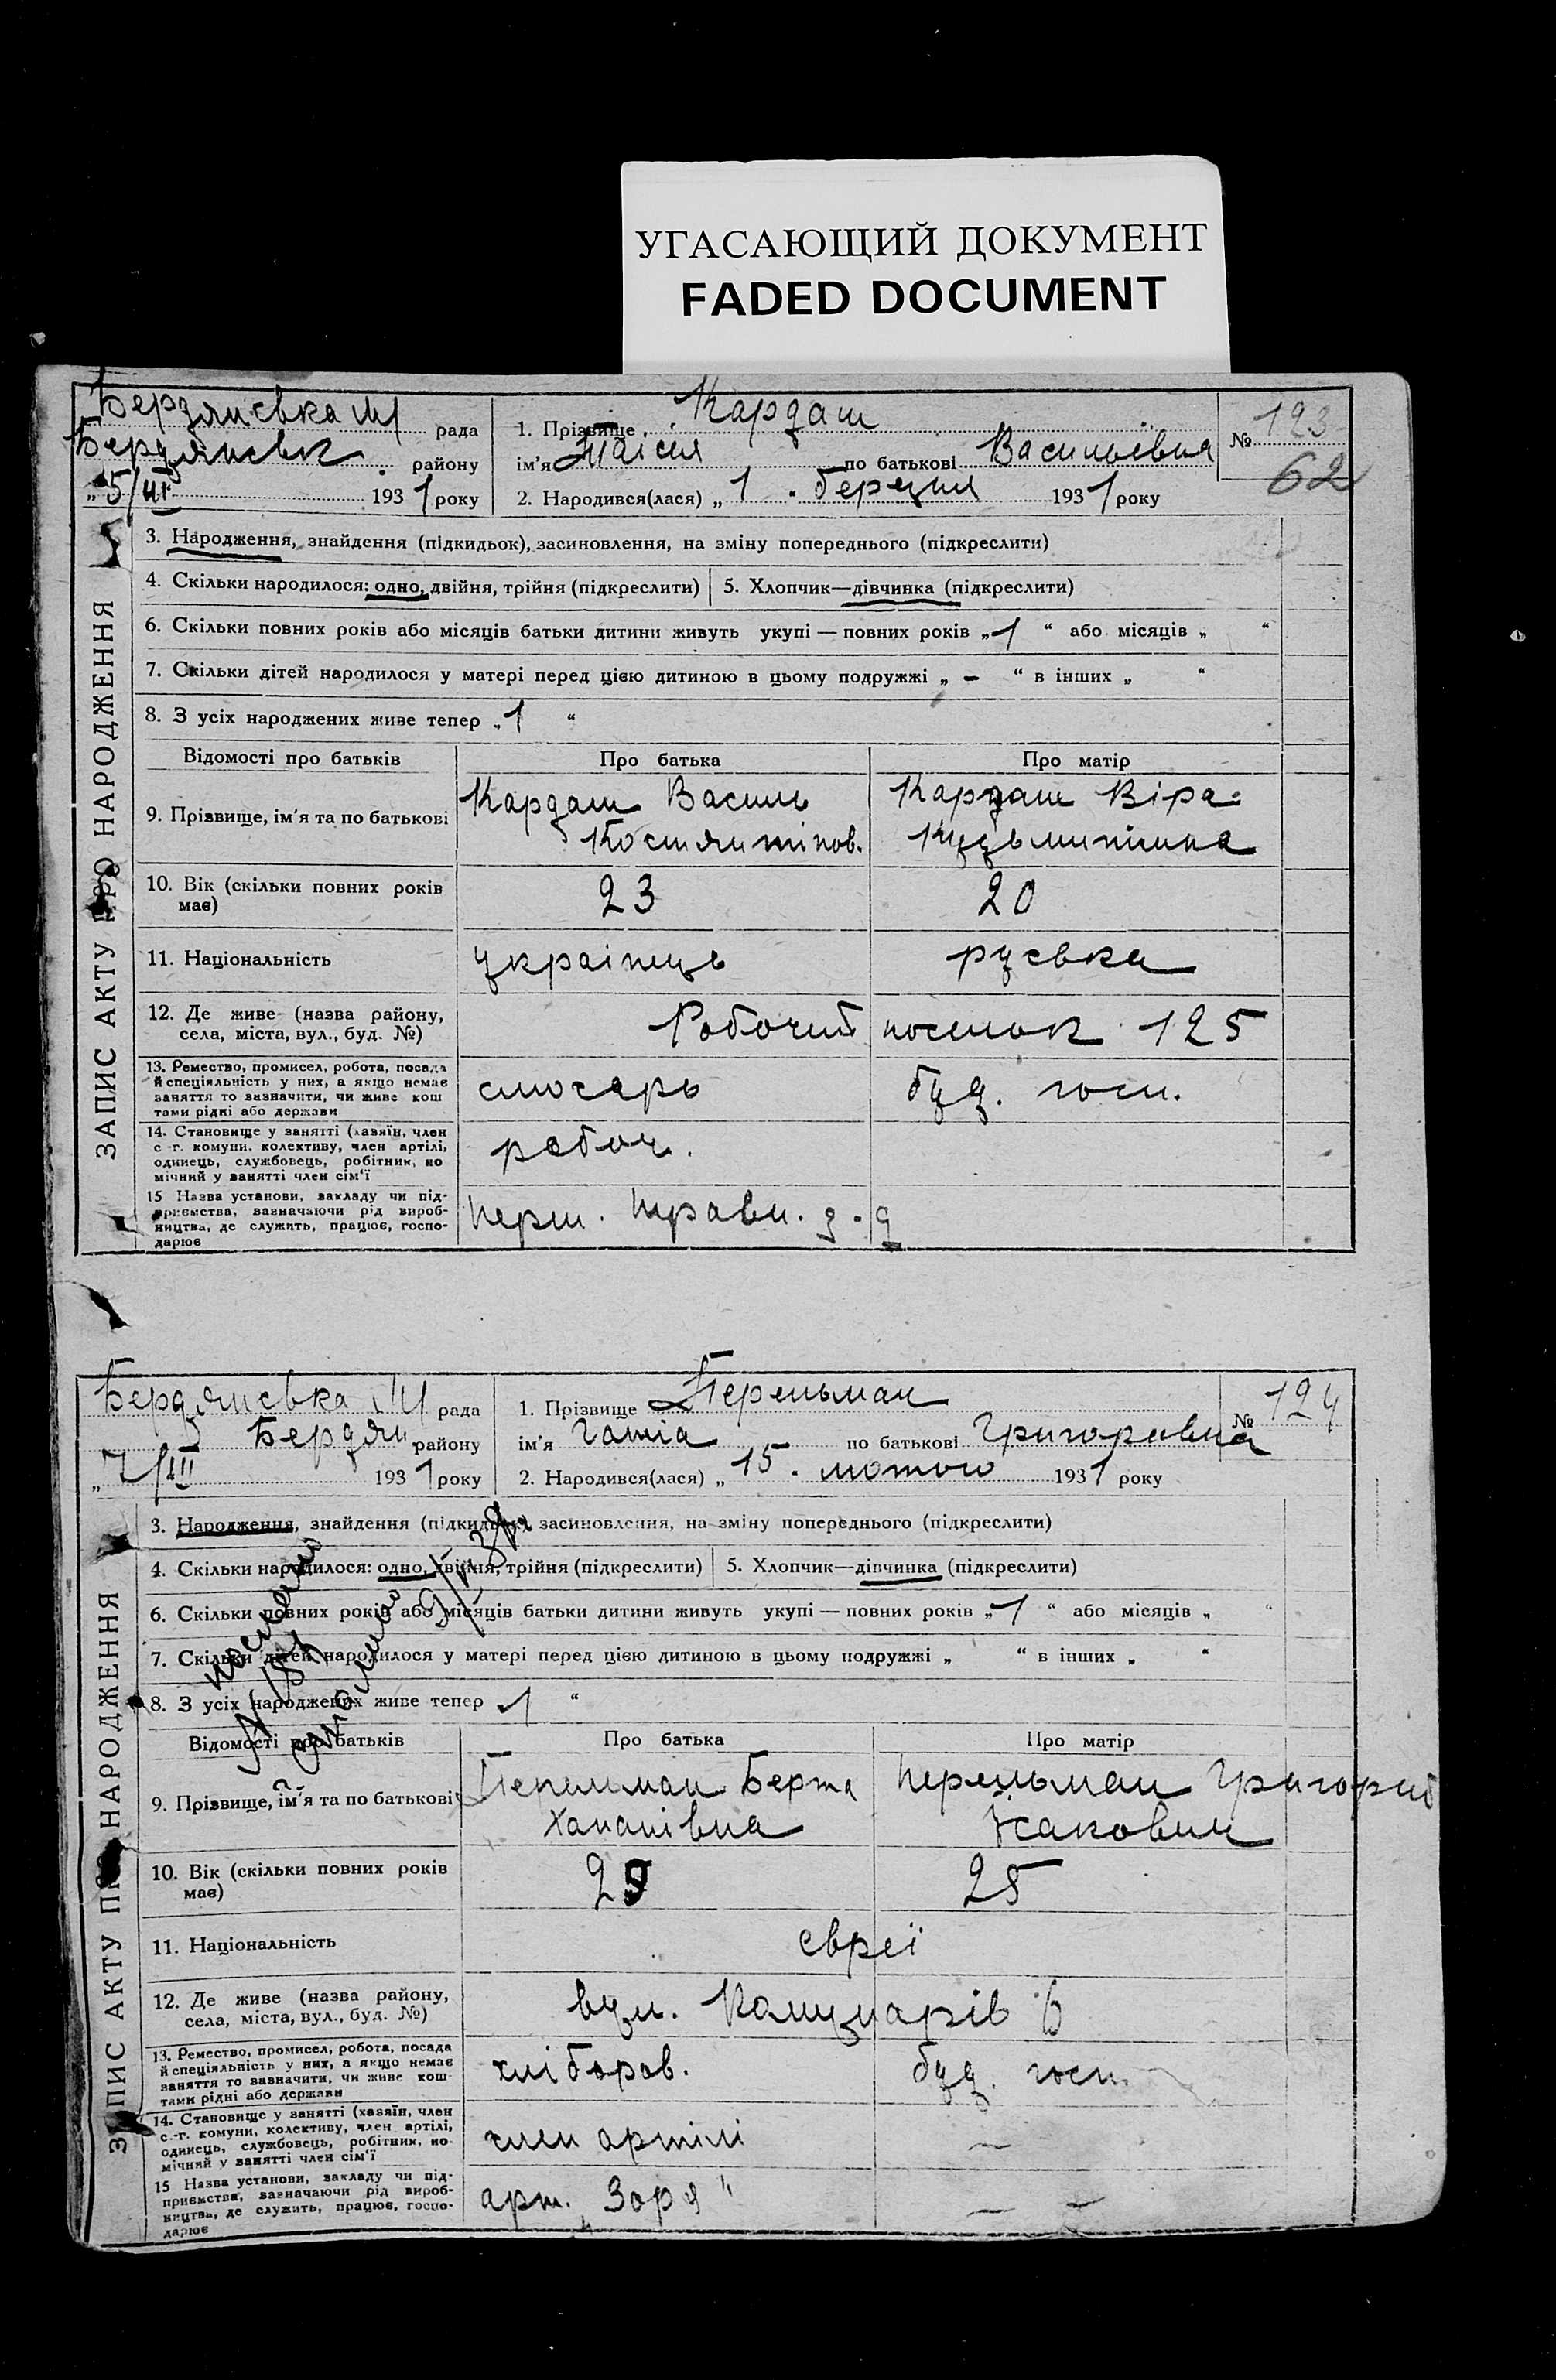 УГАСАЮЩИЙ ДОКУМЕНТ
FADED DOCUMENT
ЗАПИС АКТУ ПРО НАРОДЖЕННЯ
Бердянська М/ рада
Бердянськ. району
„5/III 1931 року
1. Прізвище Кардаш
ім'я Таісія по батькові Васильївна
2. Народився(лася) „1. березня 1931 року
№ 123
62
3. Народження, знайдення (підкидьок), засиновлення, на зміну попереднього (підкреслити)
4. Скільки народилося: одно, двійня, трійня (підкреслити) 5. Хлопчик—дівчинка (підкреслити)
6. Скільки повних років або місяців батьки дитини живуть укупі — повних років „1 “ або місяців „ “
7. Скільки дітей народилося у матері перед цією дитиною в цьому подружжі „ – “ в інших „ “
8. З усіх народжених живе тепер „1 “
Відомості про батьків Про батька Про матір
9. Прізвище, ім'я та по батькові Кардаш Василь Кардаш Віра
Костянтінов. Кузьминішна
10. Вік (скільки повних років має) 23 20
11. Національність українець руська
12. Де живе (назва району, села, міста, вул., буд. №) Робочий поселок 125
13. Ремество, промисел, робота, посада
й спеціяльність у них, а якщо немає
заняття то зазначити, чи живе кош
тами рідні або держави
слюсарь буд. госп.
14. Становище у занятті (хазяїн, член
с.-г. комуни, колективу, член артілі,
одинець, службовець, робітник, по
мічний у занятті член сім'ї
робоч.
15 Назва установи, закладу чи під-
приємства, зазначаючи рід вироб-
ництва, де служить, працює, госпо-
дарює
Перш. Травн. з-д
ЗАПИС АКТУ ПРО НАРОДЖЕННЯ
Бердянська М/ рада
Бердян. району
„7/III 1931 року
1. Прізвище Перельман
ім'я по батькові Григоровна
2. Народився(лася) „15. лютого 1931 року
№ 124
3. Народження, знайдення (підкидьок), засиновлення, на зміну попереднього (підкреслити)
4. Скільки народилося: одно, двійня, трійня (підкреслити) 5. Хлопчик—дівчинка (підкреслити)
6. Скільки повних років або місяців батьки дитини живуть укупі — повних років „1 “ або місяців „ “
7. Скільки дітей народилося у матері перед цією дитиною в цьому подружжі „ “ в інших „ “
8. З усіх народжених живе тепер „1 “
Відомості про батьків Про батька Про матір
9. Прізвище, ім'я та по батькові Перельман Берта Перельман Григорий
Хананівна Ісакович
10. Вік (скільки повних років має) 25
11. Національність євреї
12. Де живе (назва району, села, міста, вул., буд. №) вул. Комунарів
13. Ремество, промисел, робота, посада
й спеціяльність у них, а якщо немає
заняття то зазначити, чи живе кош
тами рідні або держави
хлібороб. буд. госп.
14. Становище у занятті (хазяїн, член
с.-г. комуни, колективу, член артілі,
одинець, службовець, робітник, по-
мічний у занятті член сім'ї
член артілі –
15 Назва установи, закладу чи під-
приємства, зазначаючи рід вироб-
ництва, де служить, працює, госпо-
дарює
арт. Зоря" – –